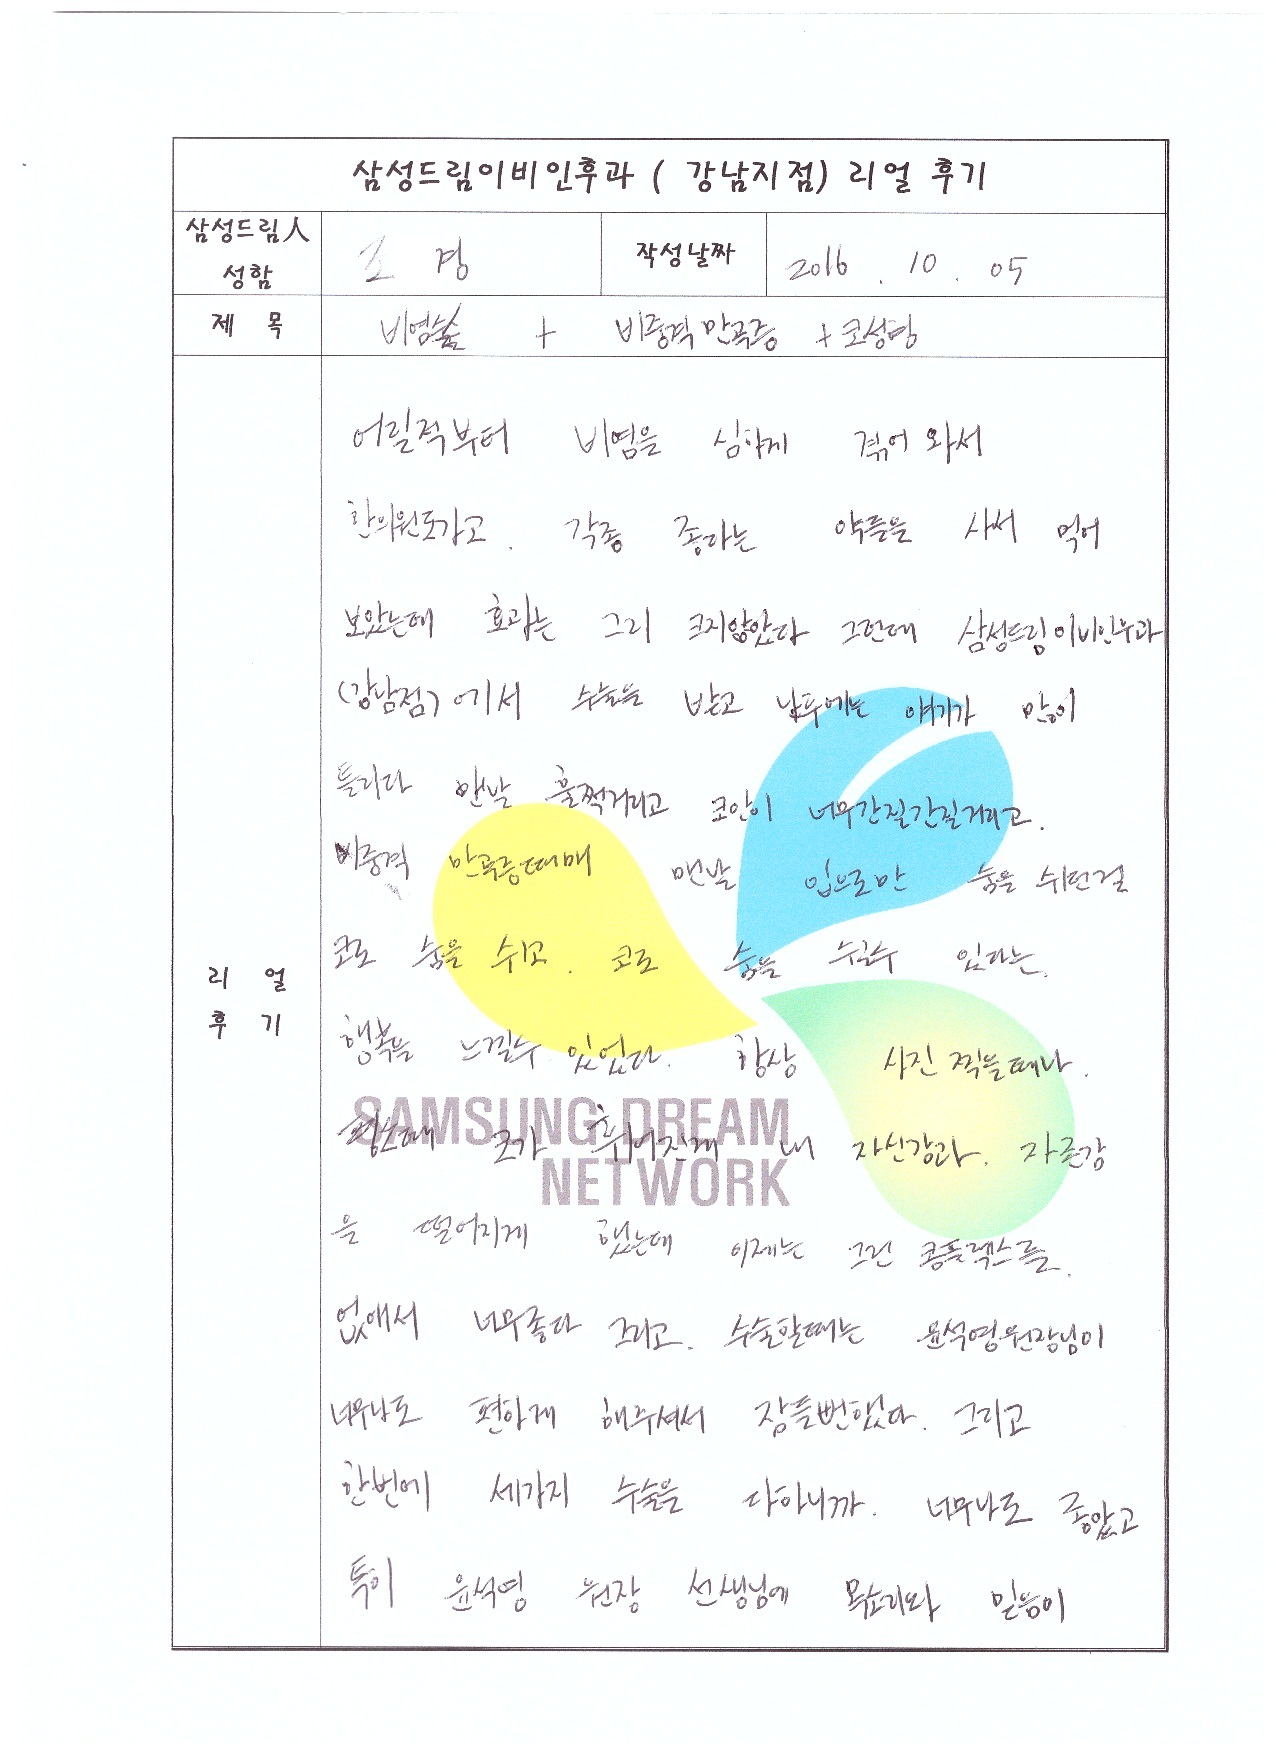 삼성드림이비인후과 ( 강남지점) 리얼 후기
삼성드림人
성함
조 경
작성날짜
2016 . 10 . 05
제 목
비염수술 + 비중격만곡증 + 코성형
리 얼
후 기
어릴적부터 비염을 심하게 겪어 와서
한의원도가고. 각종 좋다는 약들을 사서 먹어
보았는데 효과는 그리 크지않았다 그런데 삼성드림이비인후과
(강남점)에서 수술을 받고 난후에는 얘기가 많이
틀리다 맨날 훌쩍거리고 코안이 너무간질간질거리고.
비중격 만곡증때매 맨날 입으로만 숨을 쉬던걸
코로 숨을 쉬고. 코로 숨을 쉴수 있다는.
행복을 느낄수 있었다. 항상 사진 찍을때나.
코가 휘어진게 내 자신감과. 자존감
을 떨어지게 했는데 이제는 그런 콤플렉스를.
없애서 너무좋다 그리고. 수술할때는 윤석영원장님이
너무나도 편하게 해주셔서 잠들번했다. 그리고
한번에 세가지 수술을 다하니까. 너무나도 좋았고
특이 윤석영 원장 선생님에 목소리와 믿음이
SAMSUNG DREAM
NETWORK